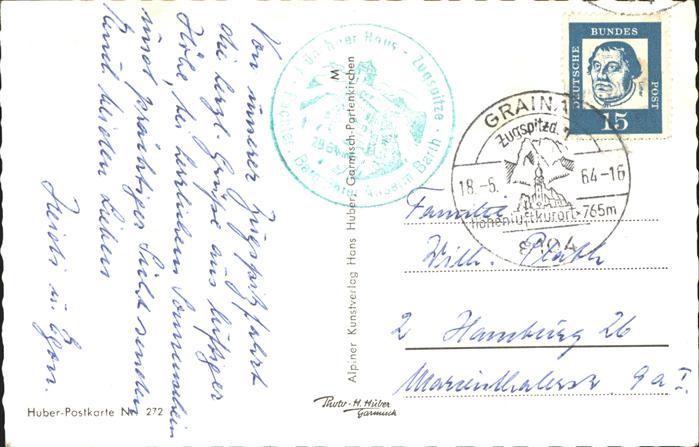 Von unserer Zugspitzfahrt
die herzl. Grüße aus luftiger
Höhe, bei herrlichem Sonnenschein
und prächtiger Sicht senden
Euch beiden Lieben
Heidi u. Egon.
Huber-Postkarte Nr. 272
M
Alpiner Kunstverlag Hans Huber, Garmisch-Partenkirchen
Photo-H. Huber
Garmisch
Münchner Haus - Zugspitze
Anselm Barth
DEUTSCHE
BUNDES
POST
Luther
15
GRAIN
Zugspitzd.
18.-6. 64.-16
Höhenluftkurort-765m
8104
Familie
Willi Plath
2 Hamburg 26
Marienthalerstr. 9a I